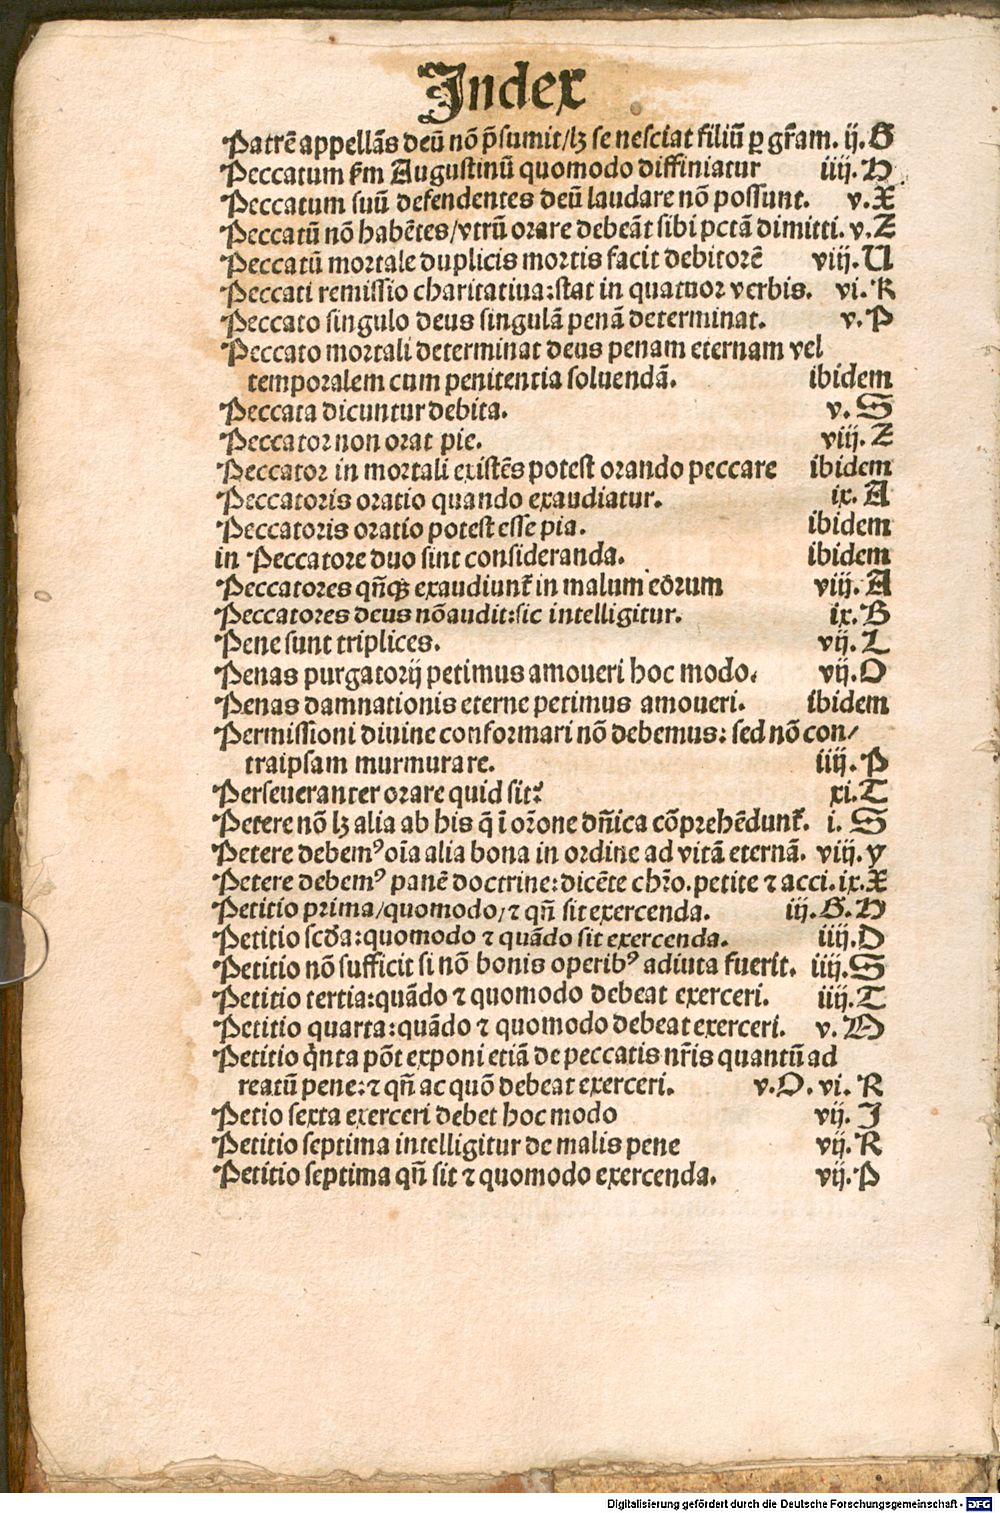 Index
Patrē appellās deū nō p̄sumit/lꝫ se nesciat filiū ꝑ gr̄am. ij. G
Peccatum ẜm Augustinū quomodo diffiniatur iiij. H
Peccatum suū defendentes deū laudare nō possunt. v. X
Peccatū nō habētes/vtrū orare debeāt sibi pctā dimitti. v. Z
Peccatū mortale duplicis mortis facit debitorē viij. U
Peccati remissio charitatiua:stat in quatuor verbis. vi. K
Peccato singulo deus singulā penā determinat. v. P
Peccato mortali determinat deus penam eternam vel
temporalem cum penitentia soluendā. ibidem
Peccata dicuntur debita. v. S
Peccator non orat pie. viij. Z
Peccator in mortali existēs potest orando peccare ibidem
Peccatoris oratio quando exaudiatur. ix. A
Peccatoris oratio potest esse pia. ibidem
in Peccatore duo sint consideranda. ibidem
Peccatores qn̄qꝫ exaudiunt᷑ in malum eōrum viij. A
Peccatores deus nōaudit:sic intelligitur. ix. B
Pene sunt triplices. vij. L
Penas purgatorij petimus amoueri hoc modo. vij. O
Penas damnationis eterne petimus amoueri. ibidem
Permissioni diuine conformari nō debemus: sed nō con/
traipsam murmurare. iiij. P
Perseueranter orare quid sit? xi. T
Petere nō lꝫ alia ab his q̄ ī or̄one dn̄ica cōprehēdunt᷑. i. S
Petere debemꝰ oīa alia bona in ordine ad vitā eternā. viij. y
Petere debemꝰ panē doctrine:dicēte chr̄o. petite ⁊ acci. ix. X
Petitio prima/quomodo/⁊ qn̄ sit exercenda. iij. G. H
Petitio scd̄a:quomodo ⁊ quādo sit exercenda. iiij. D
Petitio nō sufficit si nō bonis operibꝰ adiuta fuerit. iiij. S
Petitio tertia:quādo ⁊ quomodo debeat exerceri. iiij. T
Petitio quarta:quādo ⁊ quomodo debeat exerceri. v. M
Petitio qͥnta pōt exponi etiā de peccatis nr̄is quantū ad
reatū pene:⁊ qn̄ ac quō debeat exerceri. v. O. vi. R
Petio sexta exerceri debet hoc modo vij. J
Petitio septima intelligitur de malis pene vij. K
Petitio septima qn̄ sit ⁊ quomodo exercenda. vij. P
Digitalisierung gefördert durch die Deutsche Forschungsgemeinschaft - DFG